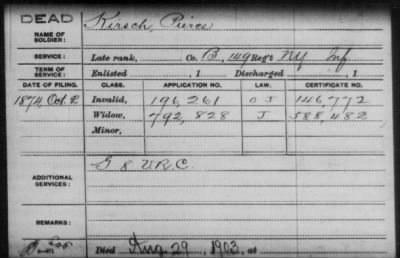 DEAD
NAME OF SOLDIER: Kirsch, Pierce
SERVICE: Late rank, Co. B, 149 Reg't NY Inf
TERM OF SERVICE: Enlisted , 1 Discharged , 1
DATE OF FILING. CLASS. APPLICATION NO. LAW. CERTIFICATE NO.
1874, Oct. 2 Invalid, 196,261 O J 146,772
Widow, 792,828 J 588,482
Minor,
ADDITIONAL SERVICES: G 8 V.R.C.
REMARKS:
Died Aug. 29, 1903, at